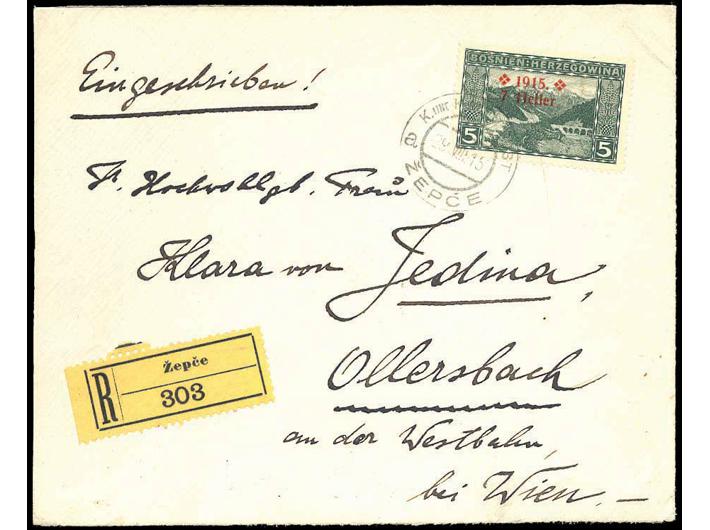 Eingeschrieben!
BOSNIEN-HERZEGOWINA
1915.
7 Heller.
5 5
ŽEPČE
Hochwohlgb. Frau
Klara von Jedina,
Ollersbach
an der Westbahn,
bei Wien.—
R
Žepče
303